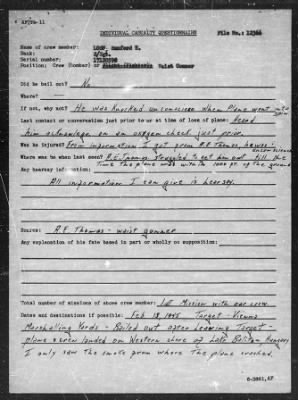 AFPPA-11
INDIVIDUAL CASUALTY QUESTIONNAIRE File No.: 12366
Name of crew member: Sanford
Rank: S/Sgt.
Serial number:
Position: Crew (bomber) or Waist Gunner
Did he bail out? No
Where?
If not, why not? He was knocked unconscious when plane went into spin
Last contact or conversation just prior to or at time of loss of plane: Heard
him acknowledge on an oxygen check just prior.
Was he injured? From information I got from R.F. Thomas, he was unconscious
Where was he when last seen? R.F. Thomas struggled to get him out till the
time the plane was within 1000 ft. of the ground
Any hearsay information:
All information I can give is hearsay.
Source: R.F. Thomas - waist gunner
Any explanation of his fate based in part or wholly on supposition:
Total number of missions of above crew member: 1st Mission with our crew
Dates and destinations if possible: Feb 13, 1945 Target - Vienna
Marshalling Yards - Bailed out after bombing Target -
plane & crew landed on Western shore of Lake Balaton, Hungary
I only saw the smoke from where the plane crashed.
6-3861,AF